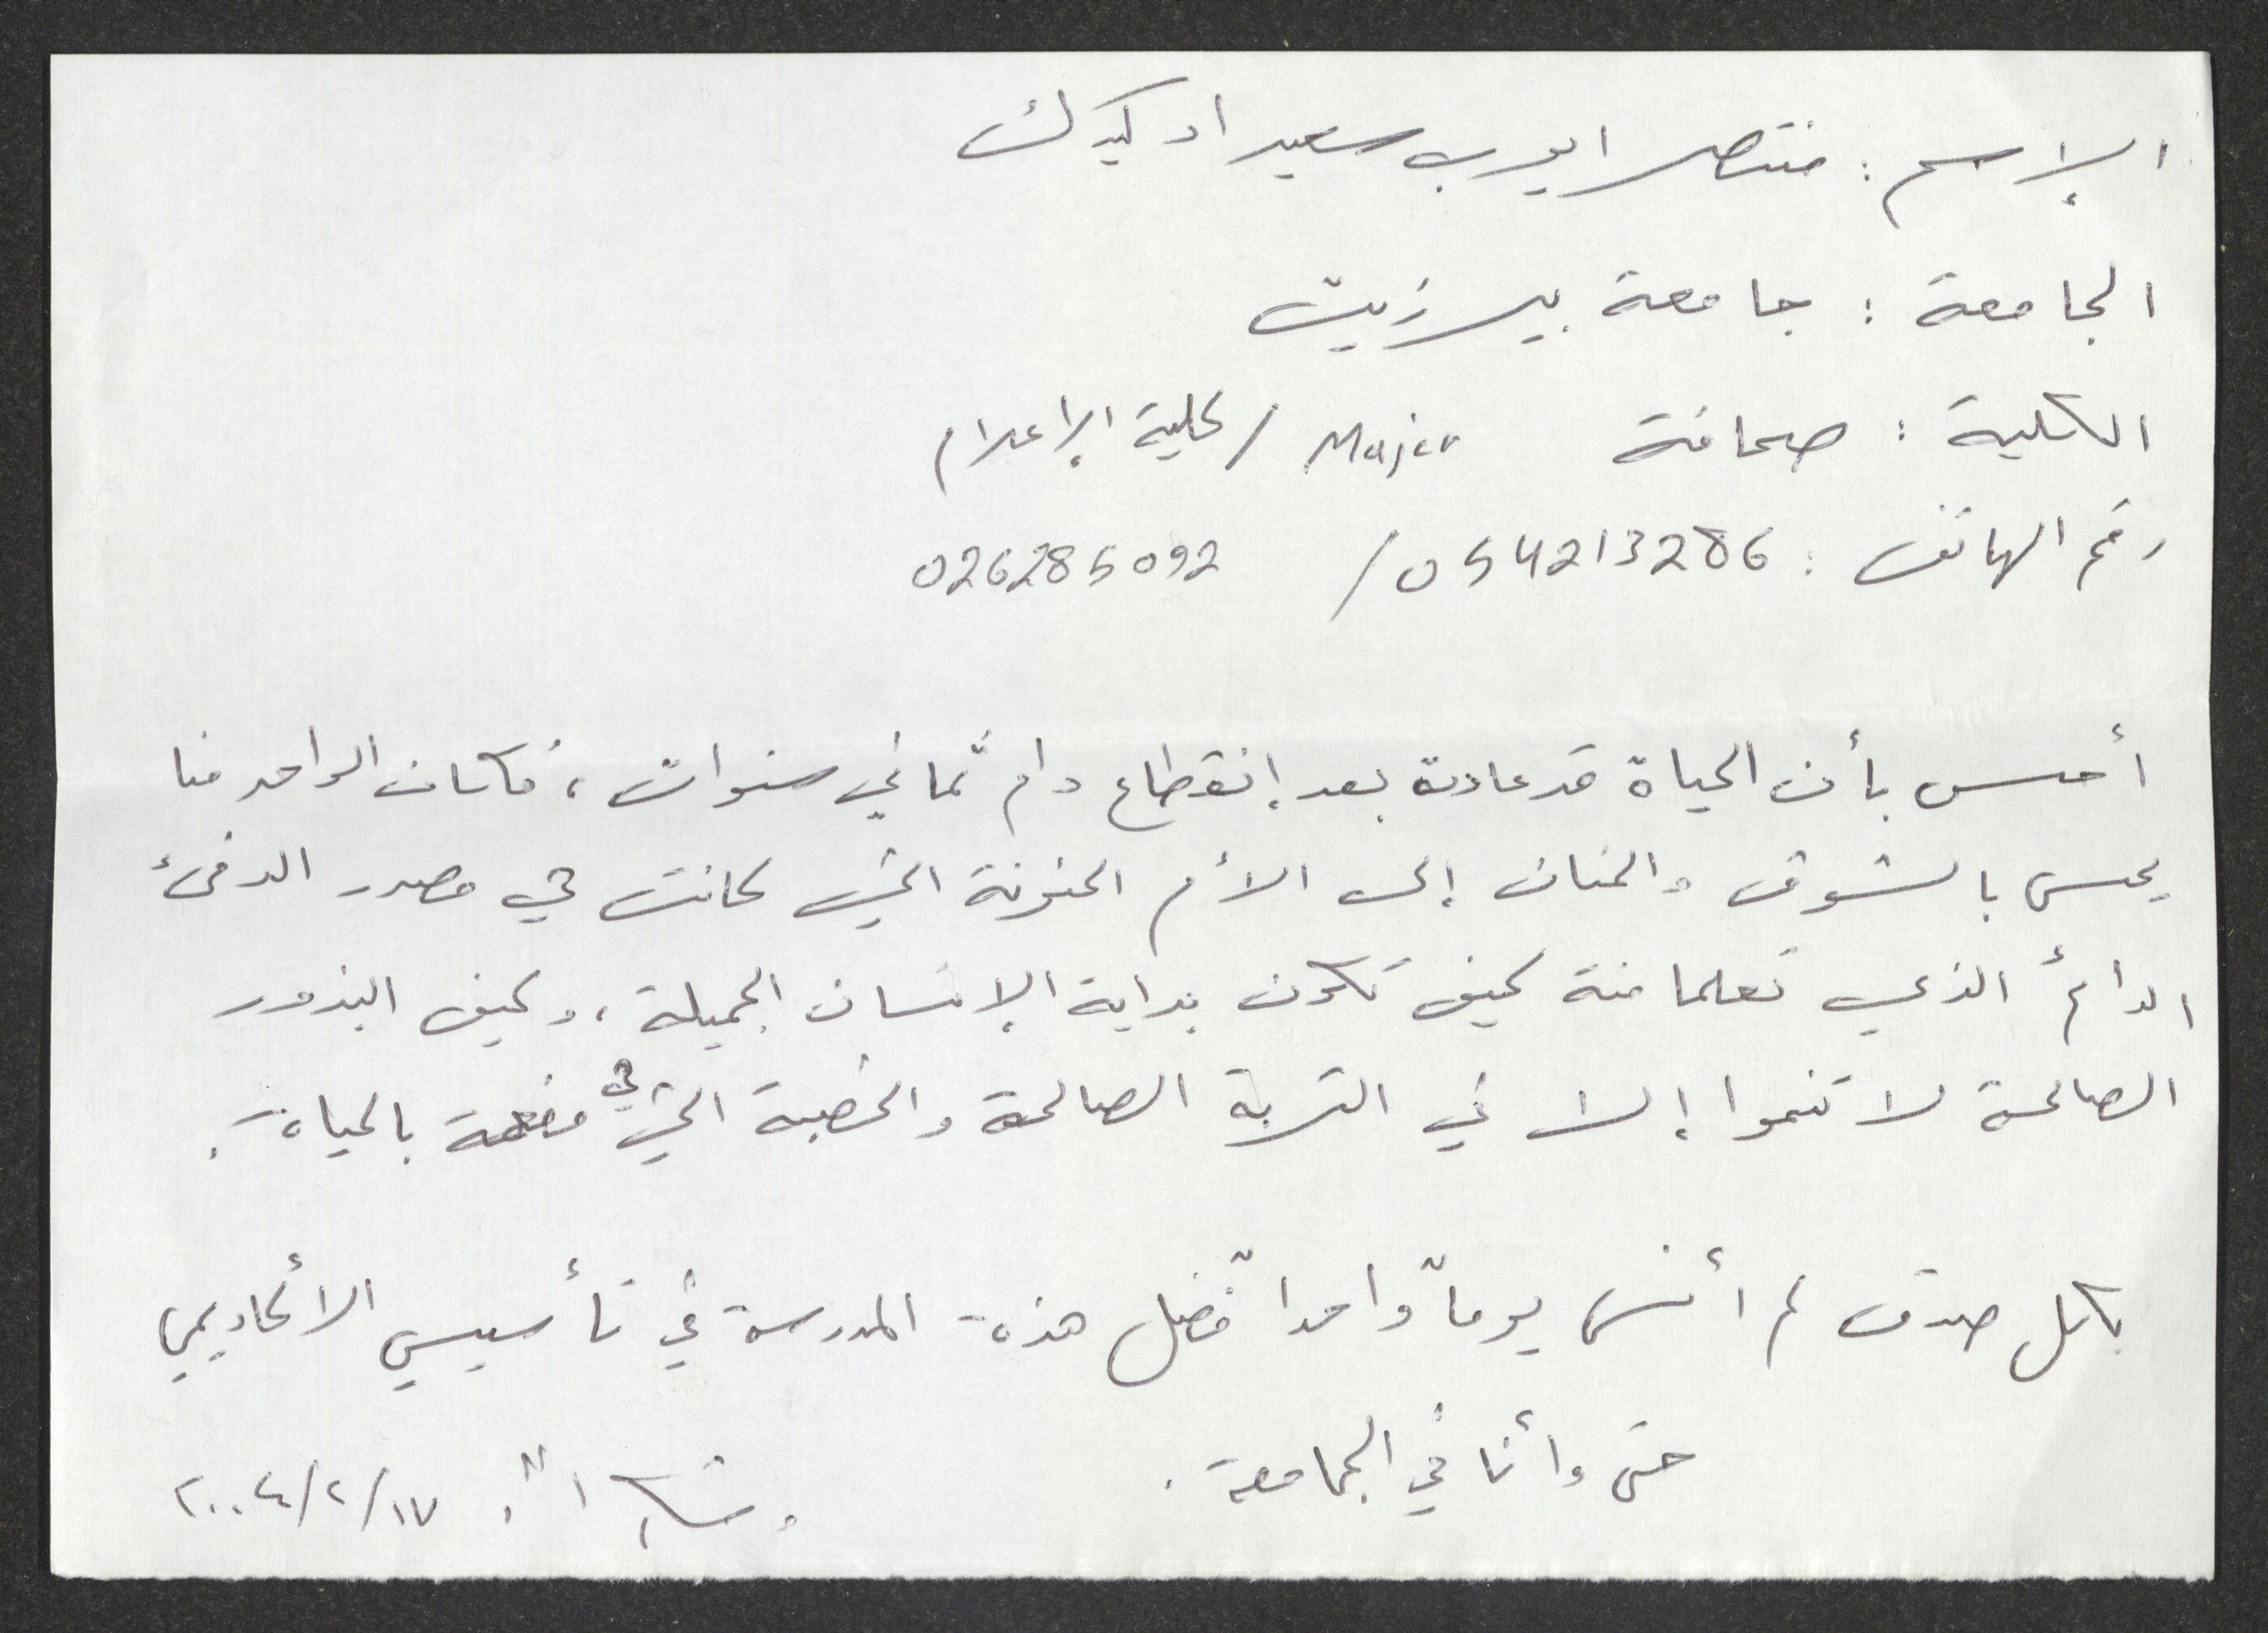 الإسم: منتصر ايوب سعيد ادكيدك
الجامعة: جامعة بيرزيت
الكلية: صحافة Major / كلية الإعلام
رقم الهاتف: 054213286 / 026285092
أحس بأن الحياة قد عادة بعد إنقطاع دام ثماني سنوات، فكان الواحد منا
يحس بالشوق والحنان إلى الأم الحنونة التي كانت هي مصدر الدفئ
الدائم الذي تعلما منة كيف تكون بداية الإنسان الجميلة، وكيف البذور
الصالحة لا تنموا إلا في التربة الصالحة والخصبة التي هي مفعمة بالحياة.
بكل صدق لم أنس يوماً واحداً فضل هذة المدرسة في تأسيسي الأكاديمي
حتى وأنا في الجامعة.
وشكراً. ٢٠٠٤/٢/١٧